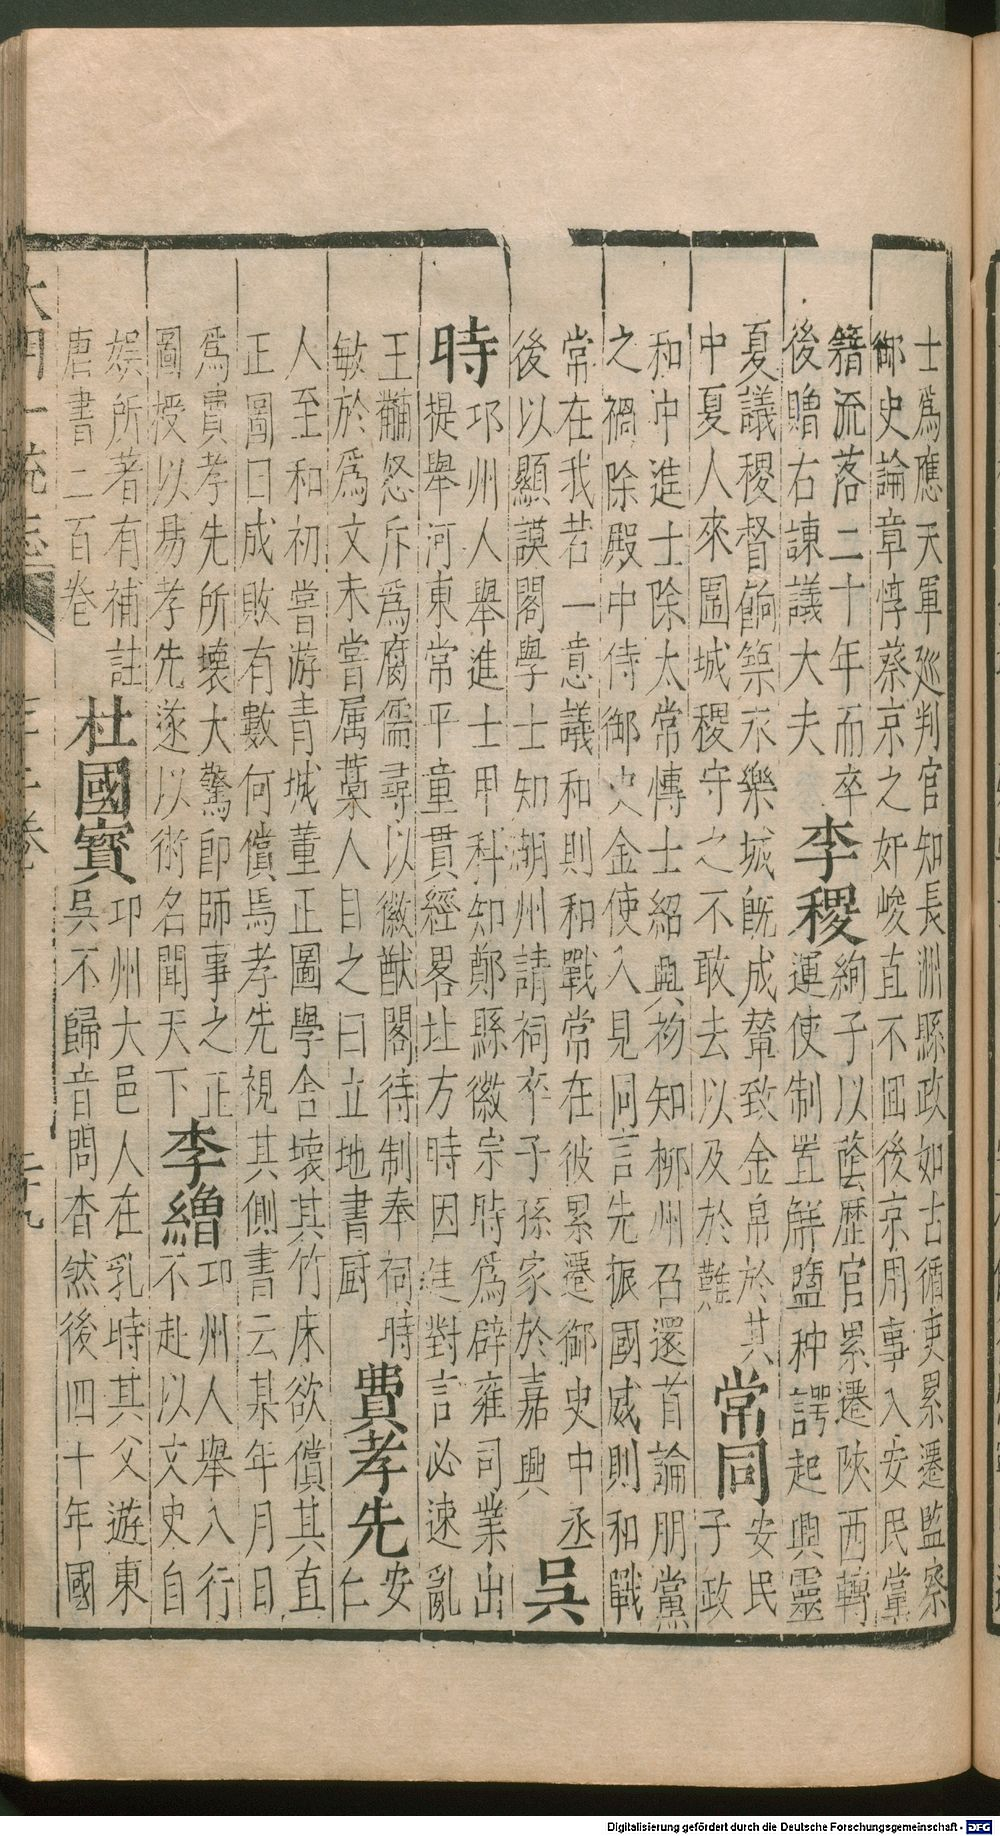 士爲應天軍巡判官知長洲縣政如古循吏累遷監察
御史論章惇蔡京之奸峻直不囬後京用事入安民黨
籍流落二十年而卒
後贈右諫議大夫
李稷
絢子以蔭歷官累遷陜西轉
運使制置解鹽种諤起興靈
夏議稷督餉築永樂城旣成輦致金帛於其
中夏人來圍城稷守之不敢去以及於難
常同
安民
子政
和中進士除太常愽士紹興初知柳州召還首論朋黨
之禍除殿中侍御史金使入見同言先振國威則和戰
常在我若一意議和則和戰常在彼累遷御史中丞
後以顯謨閣學士知湖州請祠卒子孫家於嘉興
吳
時
邛州人舉進士甲科知鄭縣徽宗時爲辟雍司業出
提舉河東常平童貫經畧北方時因進對言必速亂
王黼怒斥爲腐儒尋以徽猷閣待制奉祠時
敏於爲文未嘗属藁人目之曰立地書厨
費孝先
安
仁
人至和初嘗游青城董正圖學舍壞其竹床欲償其直
正圖曰成敗有數何償焉孝先視其側書云某年月日
爲費孝先所壞大驚即師事之正
圖授以易孝先遂以術名聞天下
李繒
邛州人舉入行
不赴以文史自
娛所著有補註
唐書二百卷
杜國寳
邛州大邑人在乳時其父遊東
吳不歸音問杳然後四十年國
大明一統志
Digitalisierung gefördert durch die Deutsche Forschungsgemeinschaft - DFG